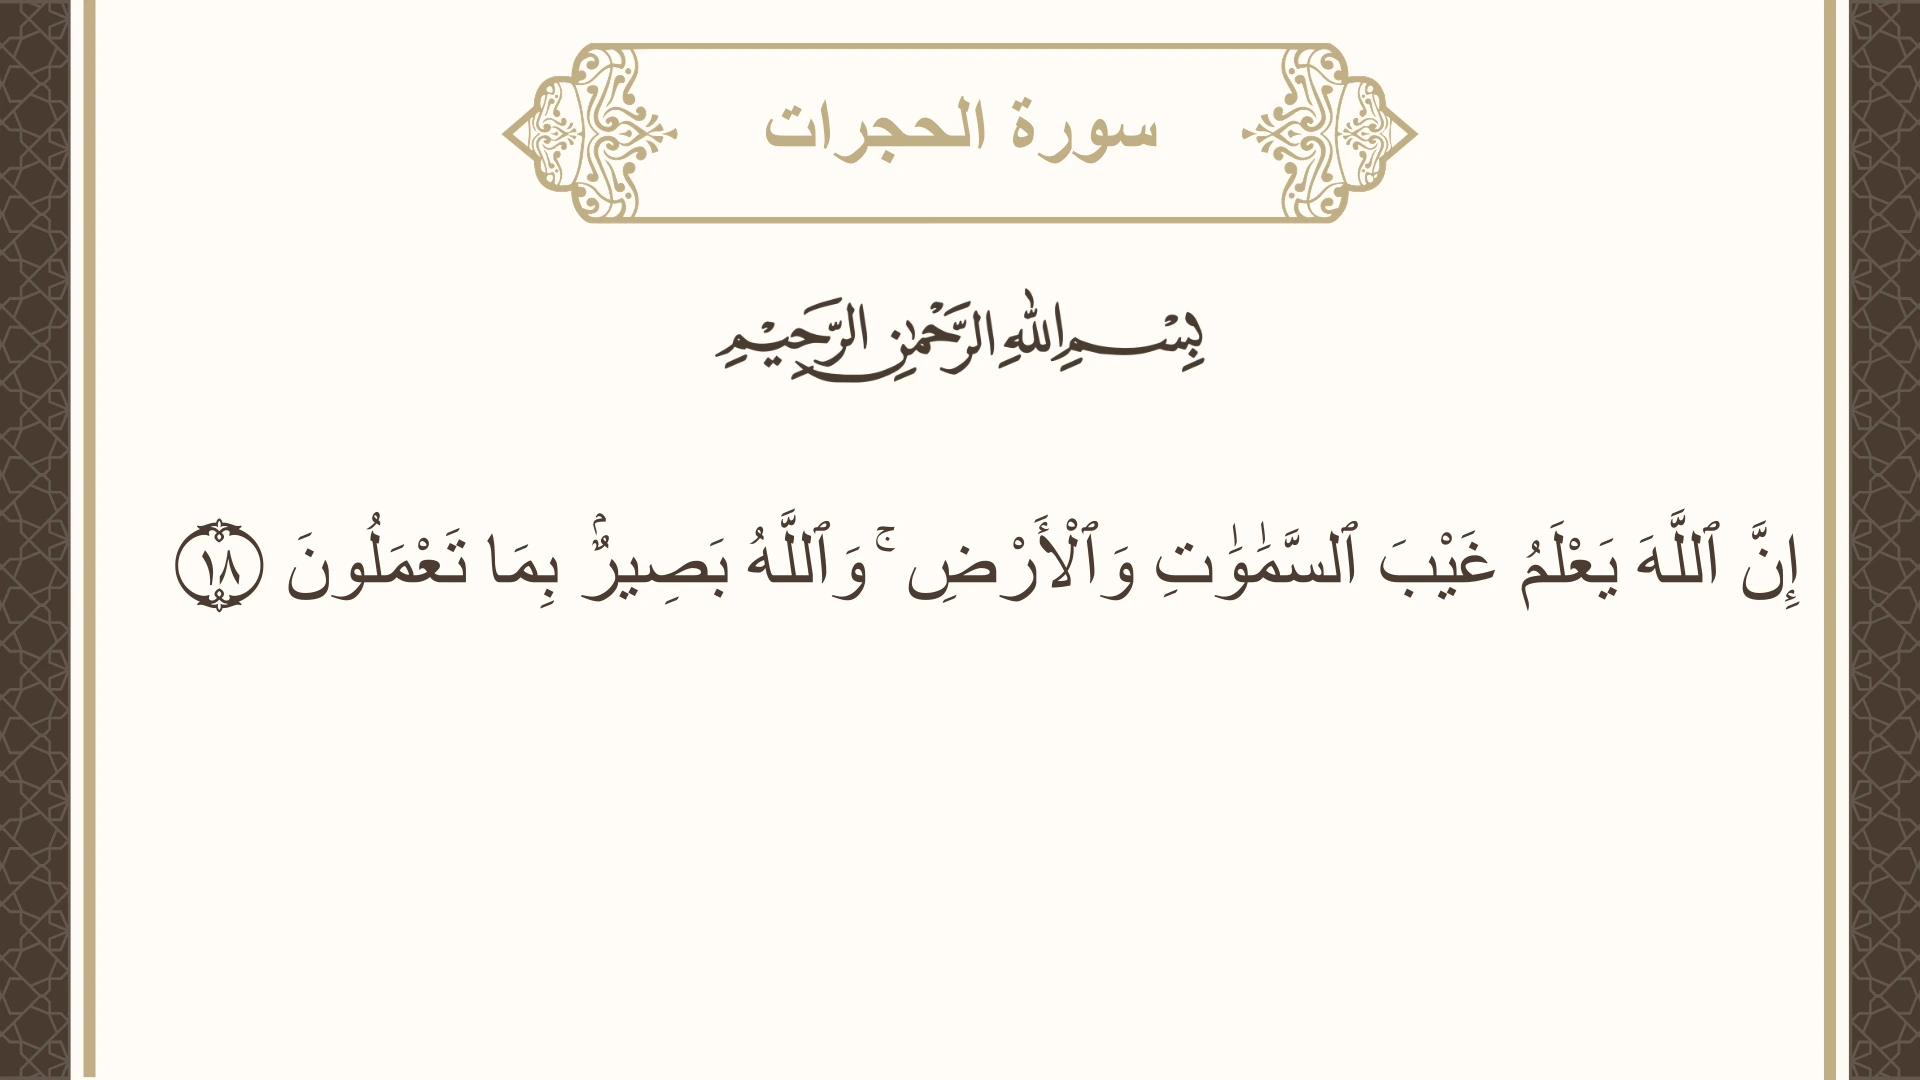 سورة الحجرات
بِسْمِ اللهِ الرَّحْمٰنِ الرَّحِيْمِ
إِنَّ ٱللَّهَ يَعْلَمُ غَيْبَ ٱلسَّمَٰوَٰتِ وَٱلْأَرْضِ ۚ وَٱللَّهُ بَصِيرٌۢ بِمَا تَعْمَلُونَ ١٨